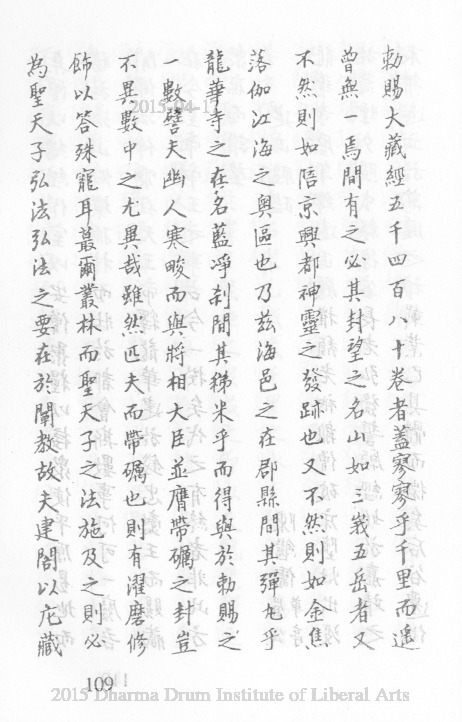 勅賜大藏經五千四百八十卷者蓋寥寥乎千里而遙
曾無 焉間有之必其封望之名山如三峩五岳者又
不然則如陪京興都神靈之發跡也又不然則如金焦
落伽江海之奧區也乃茲海邑之在郡縣間其彈丸乎
龍華寺之在名藍淨刹間其稊米乎而得與於勅賜之
一數譬夫幽人寒畯而與將相大臣並膺帶礪之封豈
不異數中之尤異哉雖然匹夫而帶礪也則有濯磨修
飾以答殊寵耳蕞爾叢林而聖天子之法施及之則必
為聖天子弘法弘法之要在於闡教故夫建閣以庀藏
2015-04-1
109
2015 Dharma Drum Institute of Liberal Arts